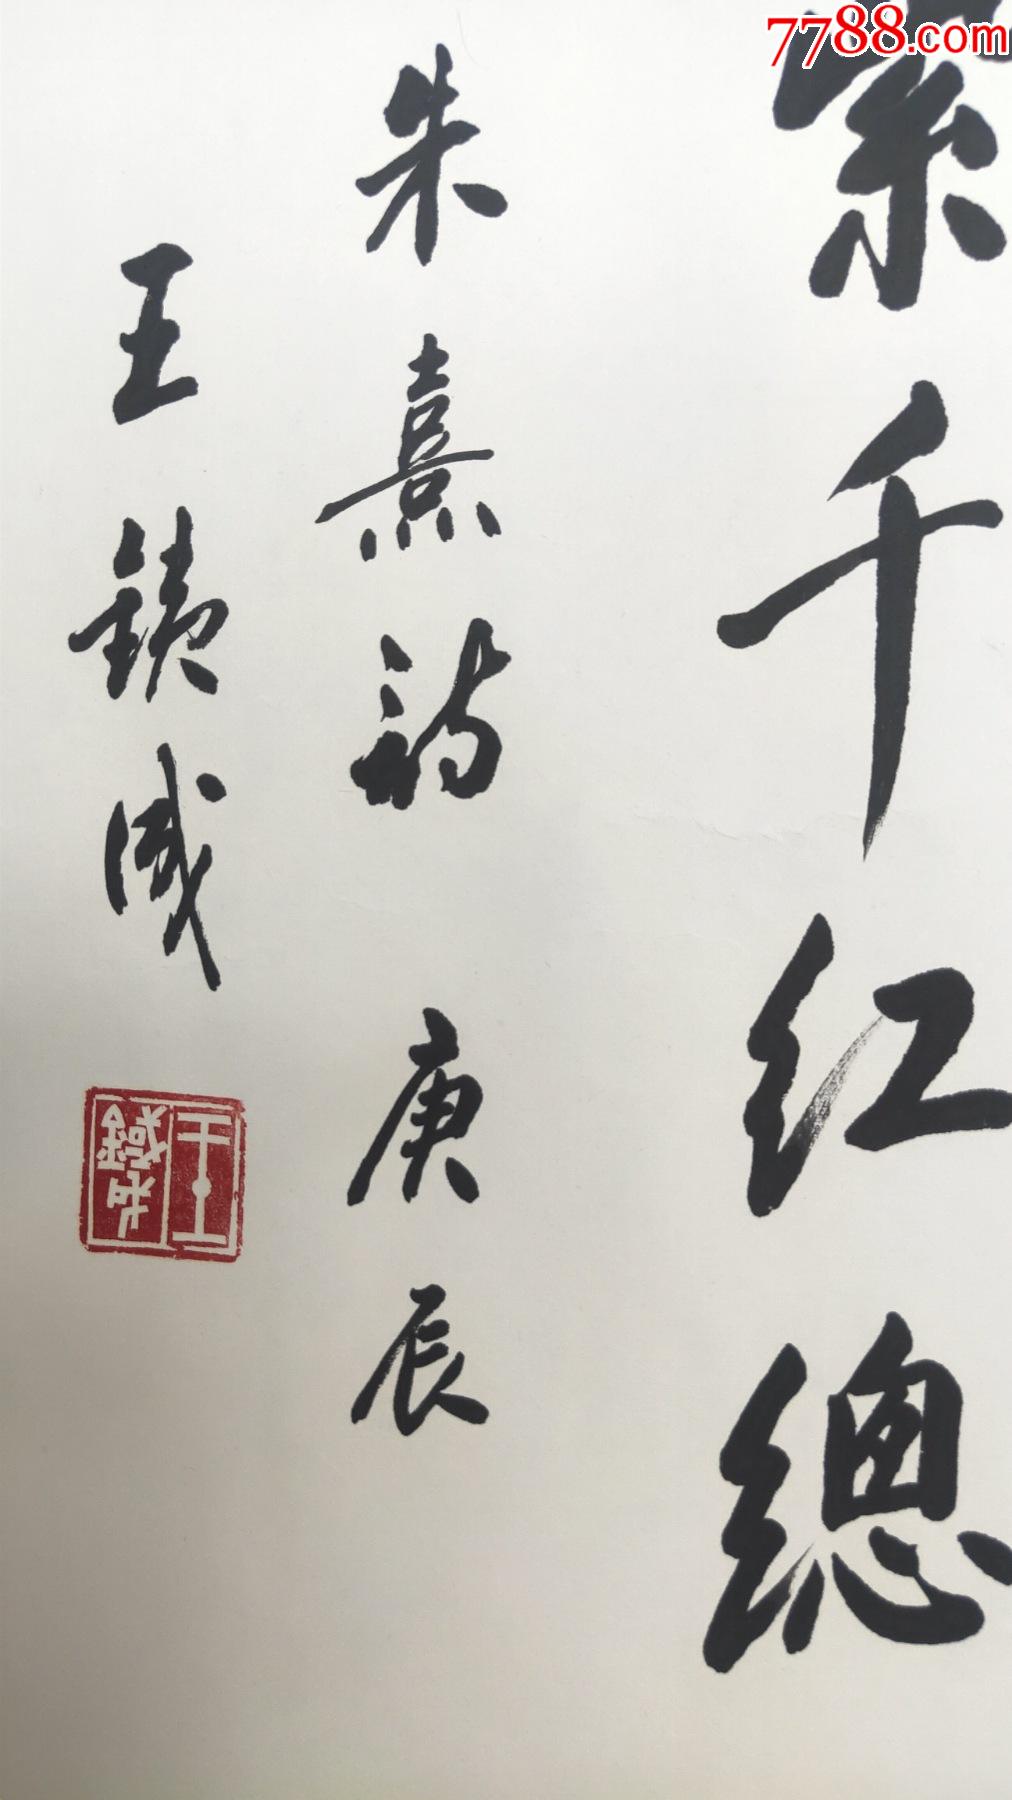 7788.com
紫千红總
朱熹詩 庚辰
王銕成
王鐵成